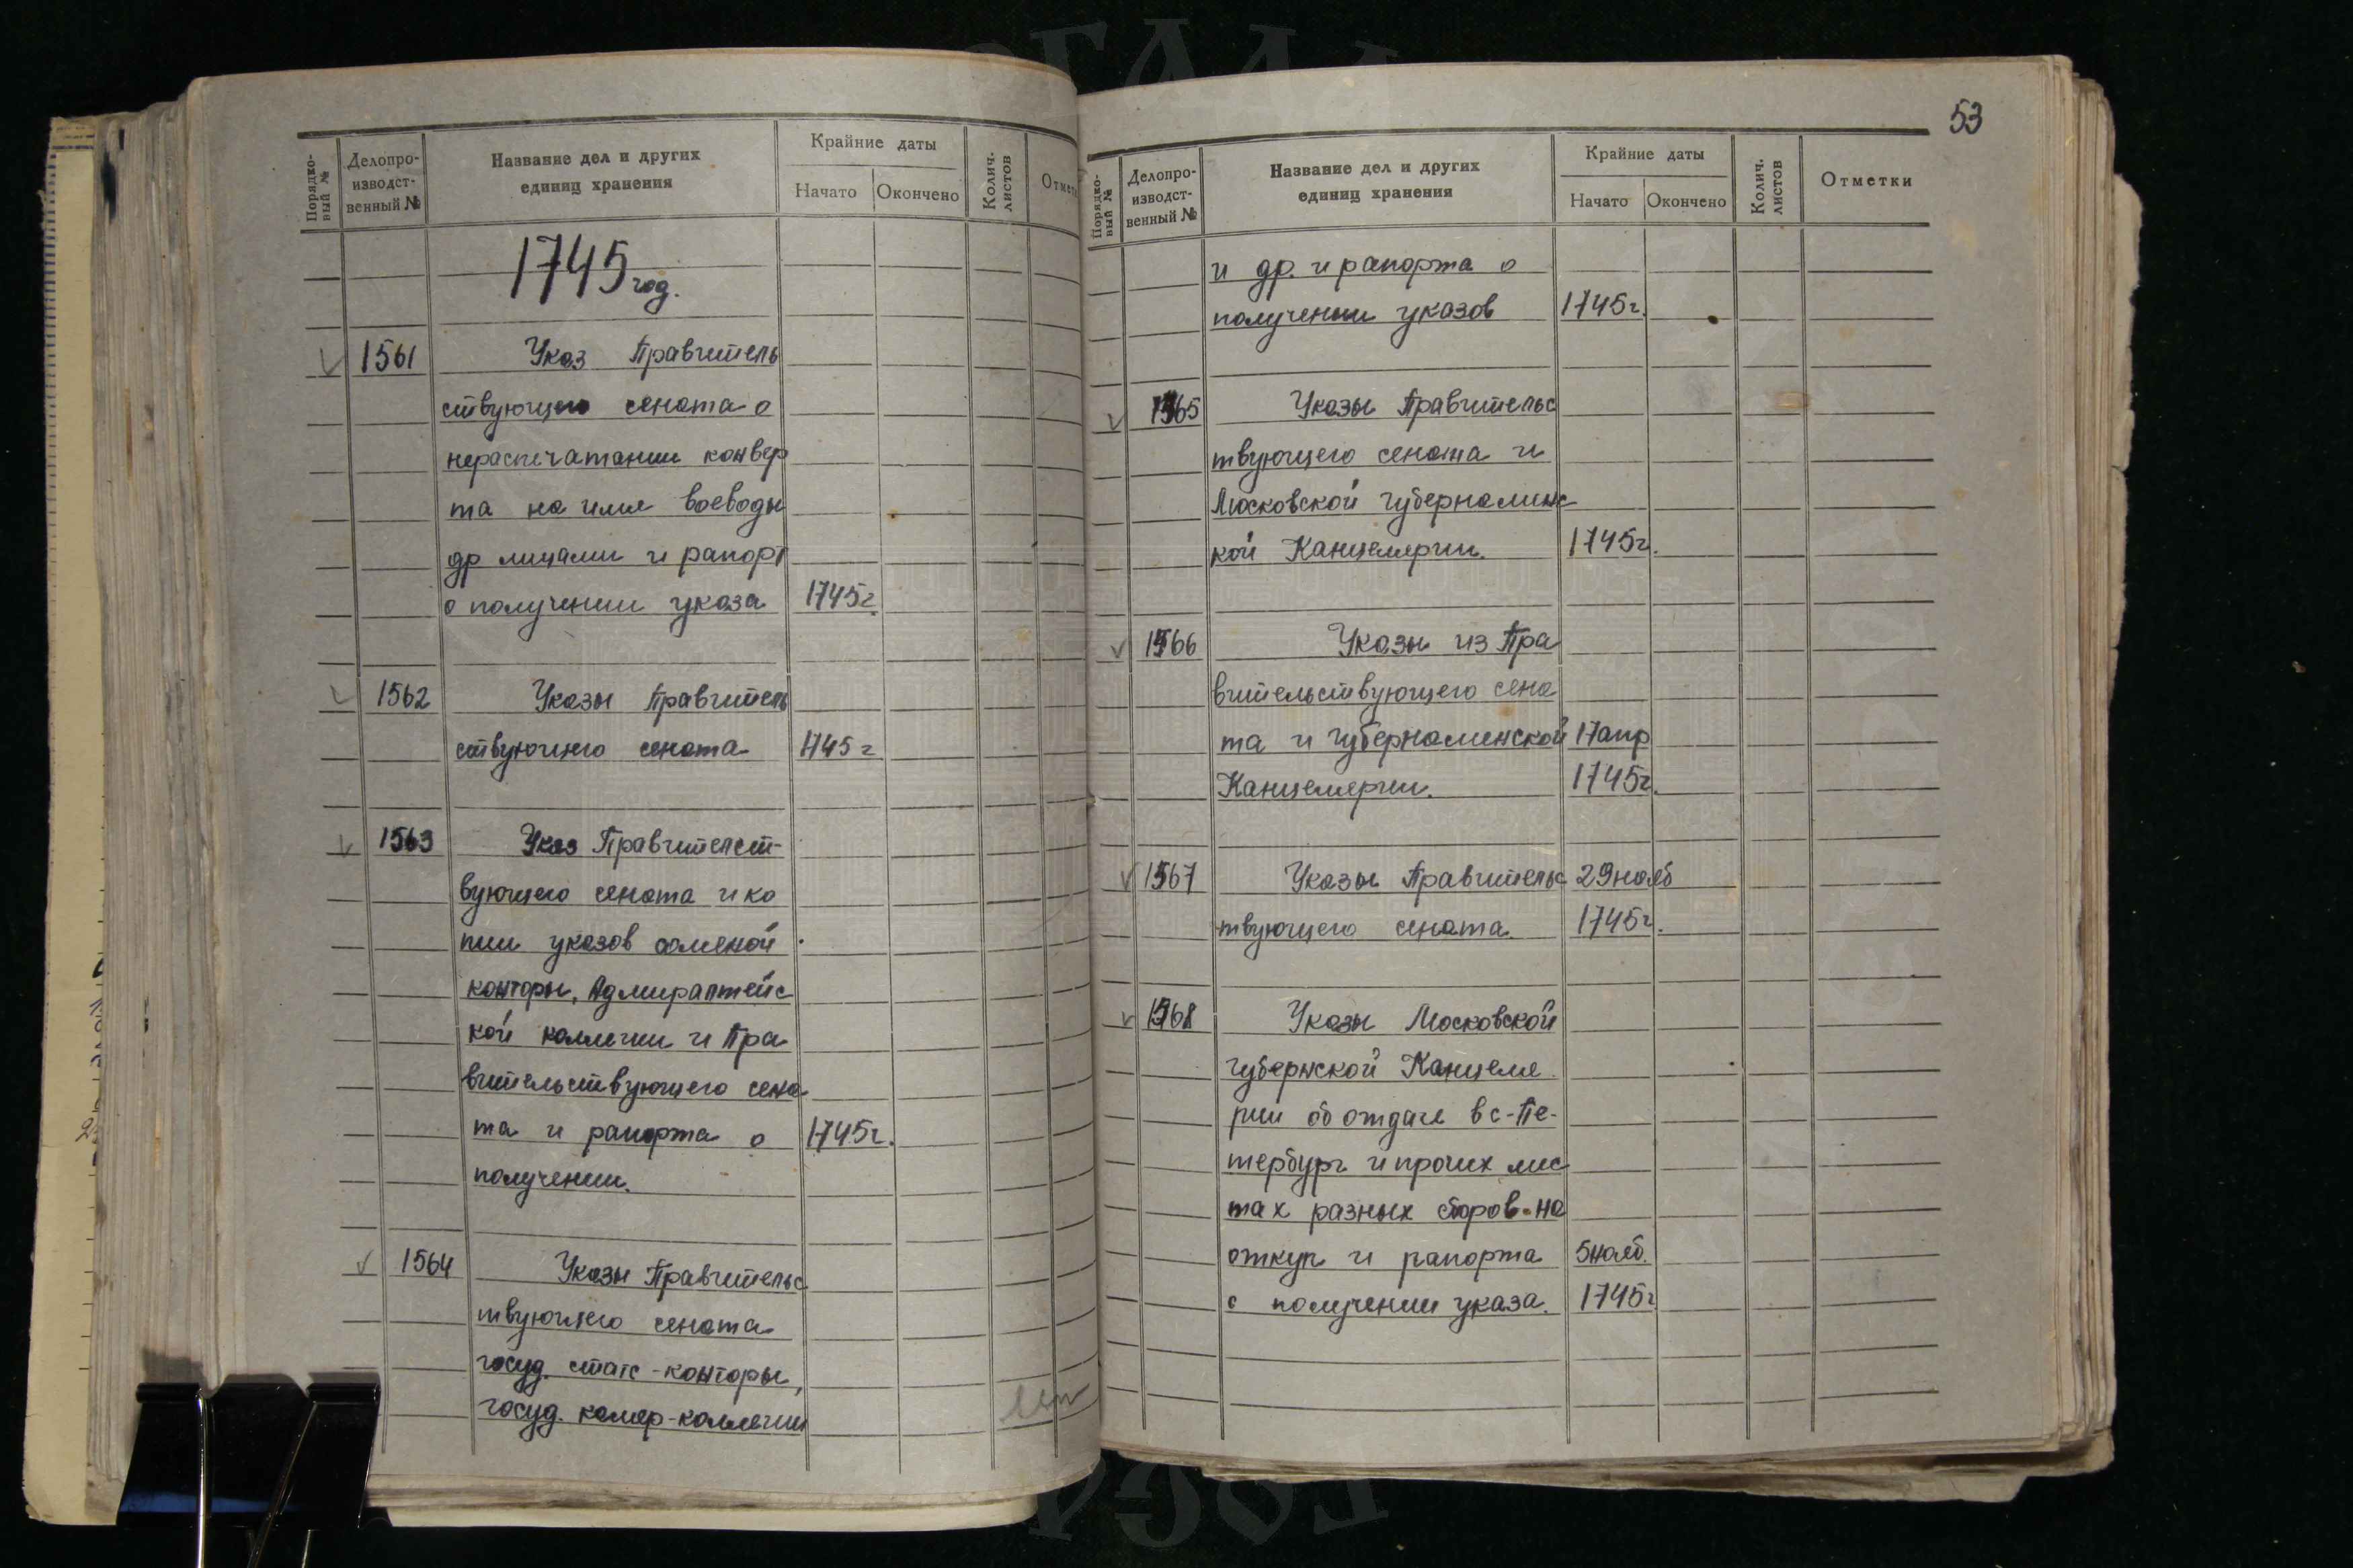 53
Порядко-
вый №
Делопро-
изводст-
венный №
Название дел и других
единиц хранения
Крайние даты
Начато
Окончено
Колич.
листов
Отметк
1745 год.
1561 Указ Правитель
ствующего сената о
нераспечатании конвер
та на имя воеводы
др лицами и рапорт
о получении указа 1745г.
1562 Указы Правитель
ствующего сената 1745г
1563 Указ Правительст-
вующего сената и ко
пии указов соляной
конторы, Адмиралтейс
кой коллегии и Пра
вительствующего сена
та и рапорта о 1745г.
получении.
1564 Указы Правительс
твующего сената
госуд. статс-конторы,
госуд. камер-коллегии
Порядко-
вый №
Делопро-
изводст-
венный №
Название дел и других
единиц хранения
Крайние даты
Начато
Окончено
Колич.
листов
Отметки
и др. и рапорта о
получении указов 1745г.
1565 Указы Правительс
твующего сената и
Московской губернаминс
кой Канцелярии. 1745г.
1566 Указы из Пра
вительствующего сена
та и губернаминской 17апр
Канцелярии. 1745г.
1567 Указы Правительс 29нояб
твующего сената. 1745г.
1568 Указы Московской
губернской Канцеля
рии об отдаче в с-Пе-
тербург и прочих мес
тах разных сборов на
откуп и рапорта 5нояб.
о получении указа. 1745г